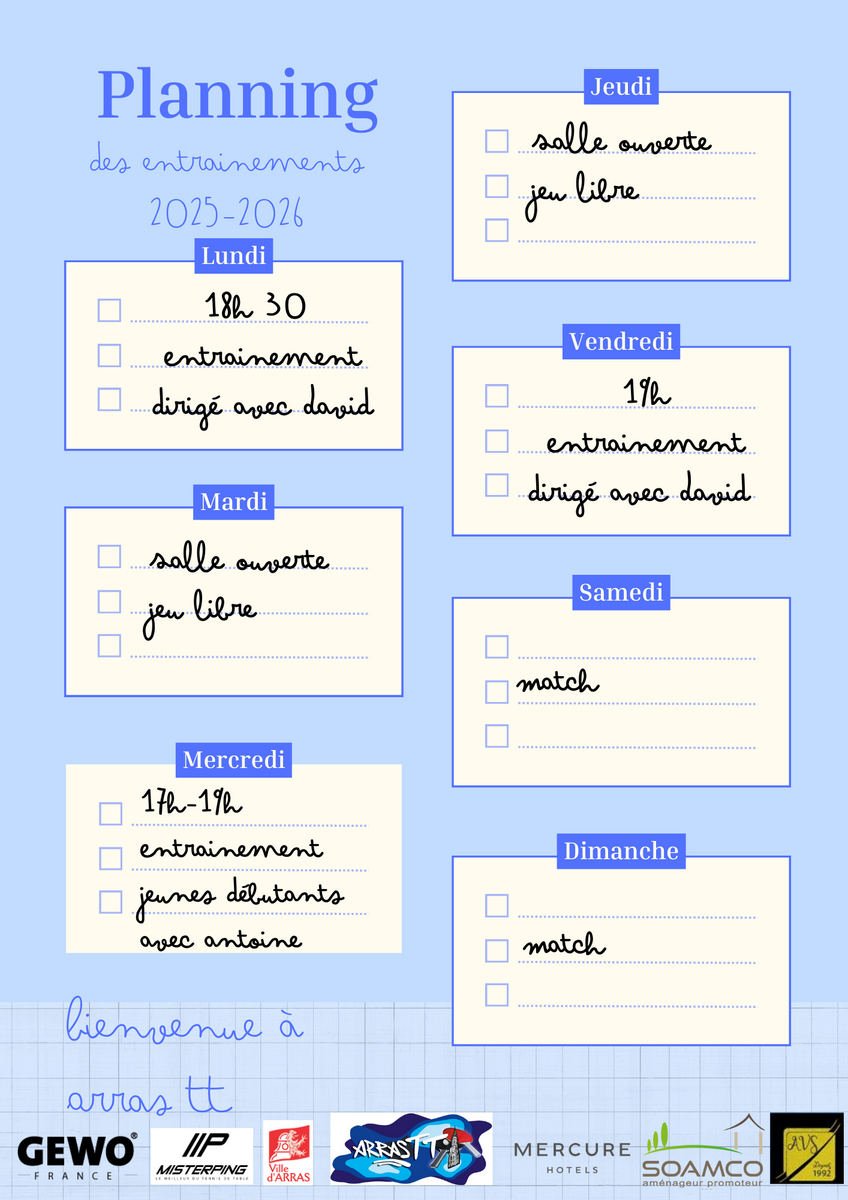 Planning
des entrainements
2025-2026
Lundi
18h 30
entrainement
dirigé avec david
Mardi
salle ouverte
jeu libre
Mercredi
17h-19h
entrainement
jeunes débutants
avec antoine
Jeudi
salle ouverte
jeu libre
Vendredi
19h
entrainement
dirigé avec david
Samedi
match
Dimanche
match
bienvenue à
arras tt
GEWO®
FRANCE
MISTERPING
LE MEILLEUR DU TENNIS DE TABLE
Ville
d'ARRAS
ARRAS TT
MERCURE
HOTELS
SOAMCO
aménageur promoteur
AVS
Depuis
1992